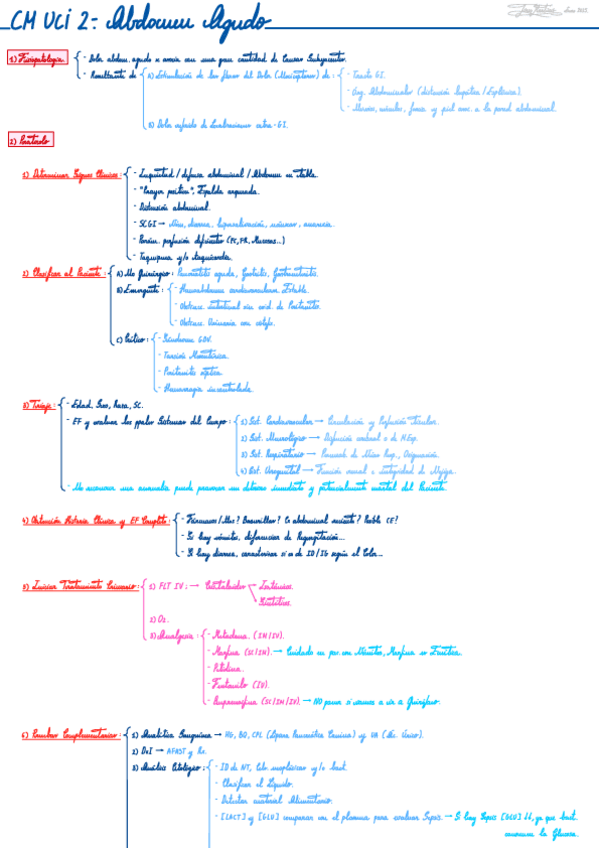 CM UCI 2: Abdomen Agudo
1) Fisiopatología
- Dolor abdom. agudo o arecia con una gran cantidad de Causas Subyacentes.
- Resultante de
A) Estimulación de los fibras del Dolor (Nociceptores) de:
- Tracto GI.
- Org. Abdominales (distensión hepática / Esplénica).
- Músculos, fascia y piel asoc. a la pared abdominal.
B) Dolor referido de localizaciones extra-GI.
2) Protocolo
1) Determinar Signos Clínicos:
- Inquietud / defensa abdominal / Abdomen en tabla.
- "Oración positiva", Espalda arqueada.
- Distensión abdominal.
- SCGI → diarrea, hipersalivación, náuseas, anorexia.
- perfusión deficientes (FC, FR, Mucosas...)
- Taquipnea y/o taquicardia.
2) Clasificar al Paciente:
A) No Quirúrgico: Pancreatitis aguda, Gastritis, Gastroenteritis.
B) Emergente:
- Hemoabdomen cardiovascularm. Estable.
- Obstrucc. intestinal sin evid. de Peritonitis.
- Obstrucc. Urinaria con
C) Crítico:
- Síndrome GDV.
- Torsión Mesentérica.
- Peritonitis séptica.
- Hemorragia incontrolada.
3) Triaje:
- Edad, Sexo, Raza, SC.
- EF y evaluar los ppales Sistemas del Cuerpo:
1) Sist. Cardiovascular → Circulación y Perfusión Tisular.
2) Sist. Neurológico → Disfunción cerebral o de M.Esp.
3) Sist. Respiratorio → Resp., Oxigenación.
4) Sist. Urogenital → Función renal e Integridad de
- No reconocer una anomalía puede provocar un deterioro inmediato y potencialmente mortal del Paciente.
4) Obtención Historia Clínica y EF Completo:
- Fármacos / Vac? abdominal reciente? Posible CE?
- Si hay vómitos, diferenciar de Regurgitación...
- Si hay diarrea, caracterizar si es de ID/IG según el Color...
3) Iniciar Tratamiento Primario:
1) FLT IV: → Cristaloides
Isotónicos.
2) O₂.
3) Analgesia:
- Metadona (IM/IV).
- Morfina (SC/IM). → Cuidado en pac. con Vómitos, Morfina es Emética.
- Petidina.
- Fentanilo (IV).
- Buprenorfina (SC/IM/IV). → NO poner si vamos a ir a Quirófano.
6) Pruebas Complementarias:
1) Analítica Sanguínea → HG, BQ, CPL (Lipasa Pancreática Canina) y UA
2) DxI → AFAST y Rx.
3) Análisis Citológico:
- ID de NT, Cels. neoplásicas y/o bact.
- Clasificar el Líquido.
- Detectar material Alimentario.
- [LACT] y [GLU] comparar con el plasma para evaluar Sepsis → Si hay Sepsis [GLU] ↓↓, ya que bact.
consumen la Glucosa.